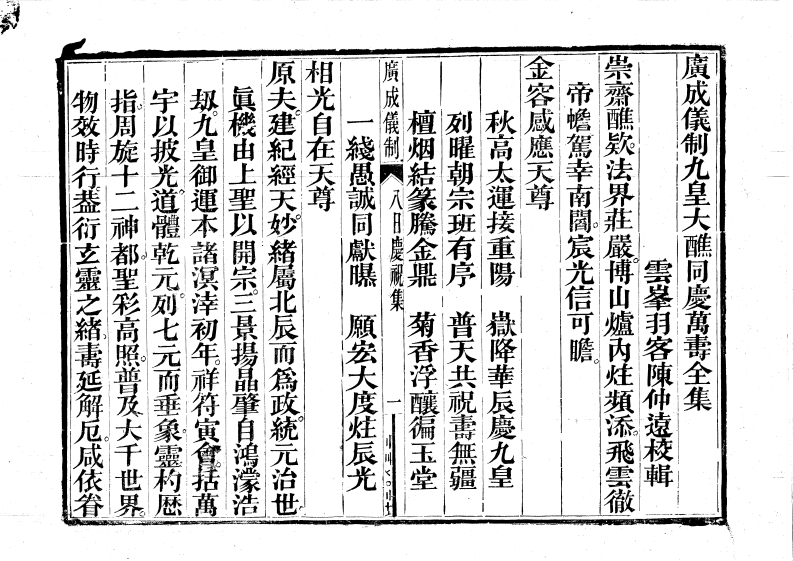 廣成儀制九皇大醮同慶萬壽全集
雲峯羽客陳仲遠校輯
崇齋醮欵。法界莊嚴。博山爐內炷頻添。飛雲徹
帝幨。駕幸南閣。宸光信可瞻。
金容感應天尊
秋高太運接重陽　嶽降華辰慶九皇
列曜朝宗班有序　普天共祝壽無疆
檀烟結篆騰金鼎　菊香浮釀徧玉堂
廣成儀制　八日慶祝集　一
一綫愚誠同獻曝　願宏大度炷辰光
相光自在天尊
原夫。建紀經天。妙緒屬北辰而爲政。統元治世。
眞機由上聖以開宗。三景揚晶。肇自鴻濛浩
刼。九皇御運。本諸溟涬初年。祥符寅會。括萬
宇以披光。道體乾元。列七元而垂象。靈杓歷
指。周旋十二神都。聖彩高照。普及大千世界。
物效時行。葢衍玄靈之緒。壽延解厄。咸依眷